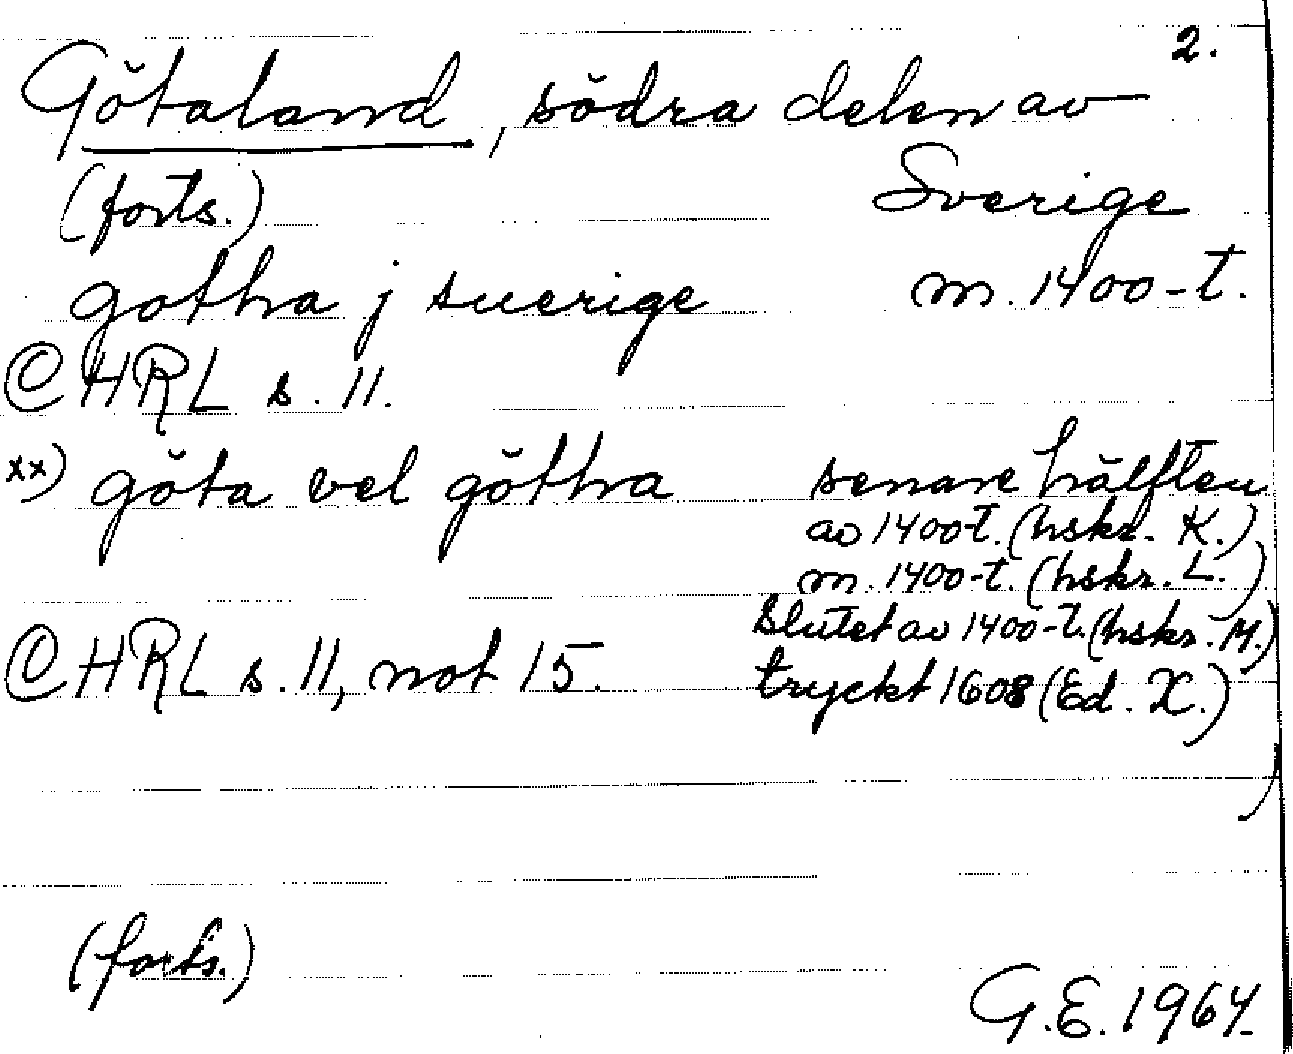 2.
Götaland, södra delen av
(forts.) Sverige
gotha j suerige m. 1400-t.
© HRL s. 11.
xx) göta vel götha senare hälften
av 1400-t. (hskr. K.)
m. 1400-t. (hskr. L.)
slutet av 1400-t. (hskr. M.)
© HRL s. 11, not 15. tryckt 1608 (Ed. X.)
(forts.)
G.E. 1964.